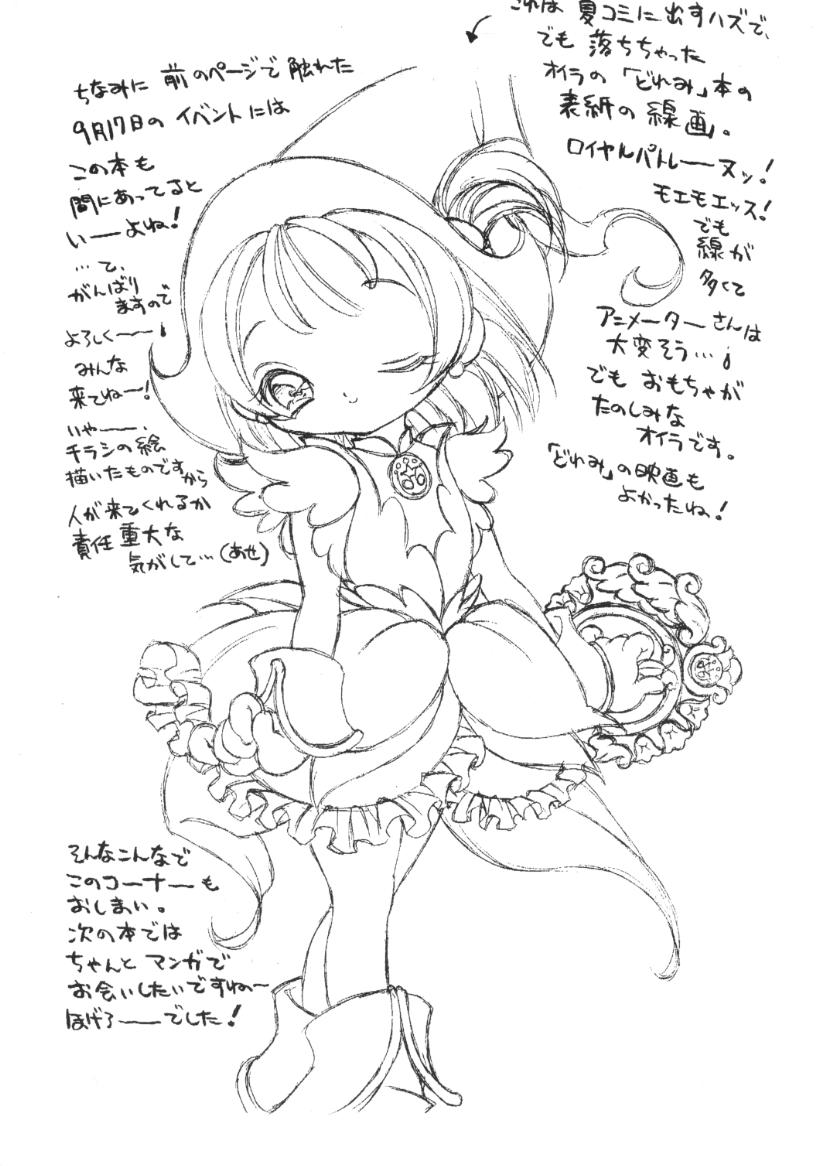 これは 夏コミに出すハズで、
でも 落ちちゃった
オイラの「どれみ」本の
表紙の線画。
ロイヤルパトレーーヌッ!
モエモエッス!
でも
線が
多くて
アニメーターさんは
大変そう…
でも おもちゃが
たのしみな
オイラです。
「どれみ」の映画も
よかったね!
ちなみに 前のページで 触れた
9月17日の イベントには
この本も
間にあってると
いーーよね!
…て、
がんばり
ますので
よろしくーーー!
みんな
来てねーー!
いやーー、
チラシの絵
描いたものですから
人が来てくれるか
責任重大な
気がして…(あせ)
そんなこんなで
このコーナーも
おしまい。
次の本では
ちゃんと マンガで
お会いしたいですね〜
ほげろーーーでした!